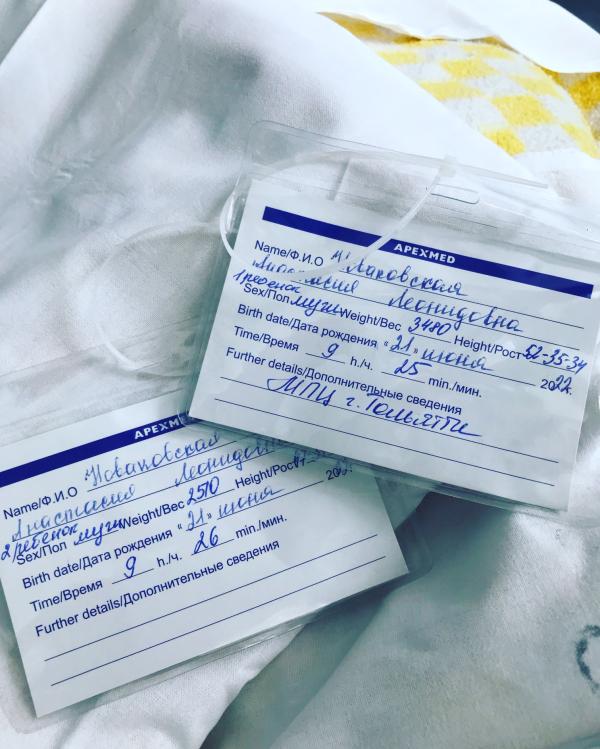 APEXMED
Name/Ф.И.О Новаковская
Анастасия Леонидовна
1 ребенок
Sex/Пол муж Weight/Вес 3480 Height/Рост 52-35-34
Birth date/Дата рождения "21" июня 2022г.
Time/Время 9 h./ч. 25 min./мин.
Further details/Дополнительные сведения
МПЦ г. Тольятти
APEXM
Name/Ф.И.О Новаковская
Анастасия Леонидовна
2 ребенок
Sex/Пол муж Weight/Вес 2510 Height/Рост
Birth date/Дата рождения "21" июня
Time/Время 9 h./ч. 26 min./мин.
Further details/Дополнительные сведения